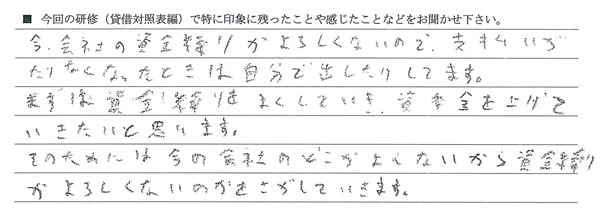 ■ 今回の研修（貸借対照表編）で特に印象に残ったことや感じたことなどをお聞かせ下さい。
今、会社の資金繰りがよろしくないので、支払いが
たりなくなったときは自分で出したりしてます。
まずは資金繰りをよくしていき、資本金を上げて
いきたいと思います。
そのためには今の会社のどこがよくないから資金繰り
がよろしくないのかをさがしていきます。